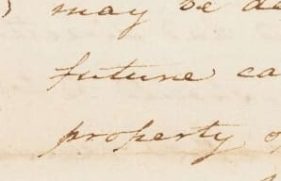 may be de
future ca
property o